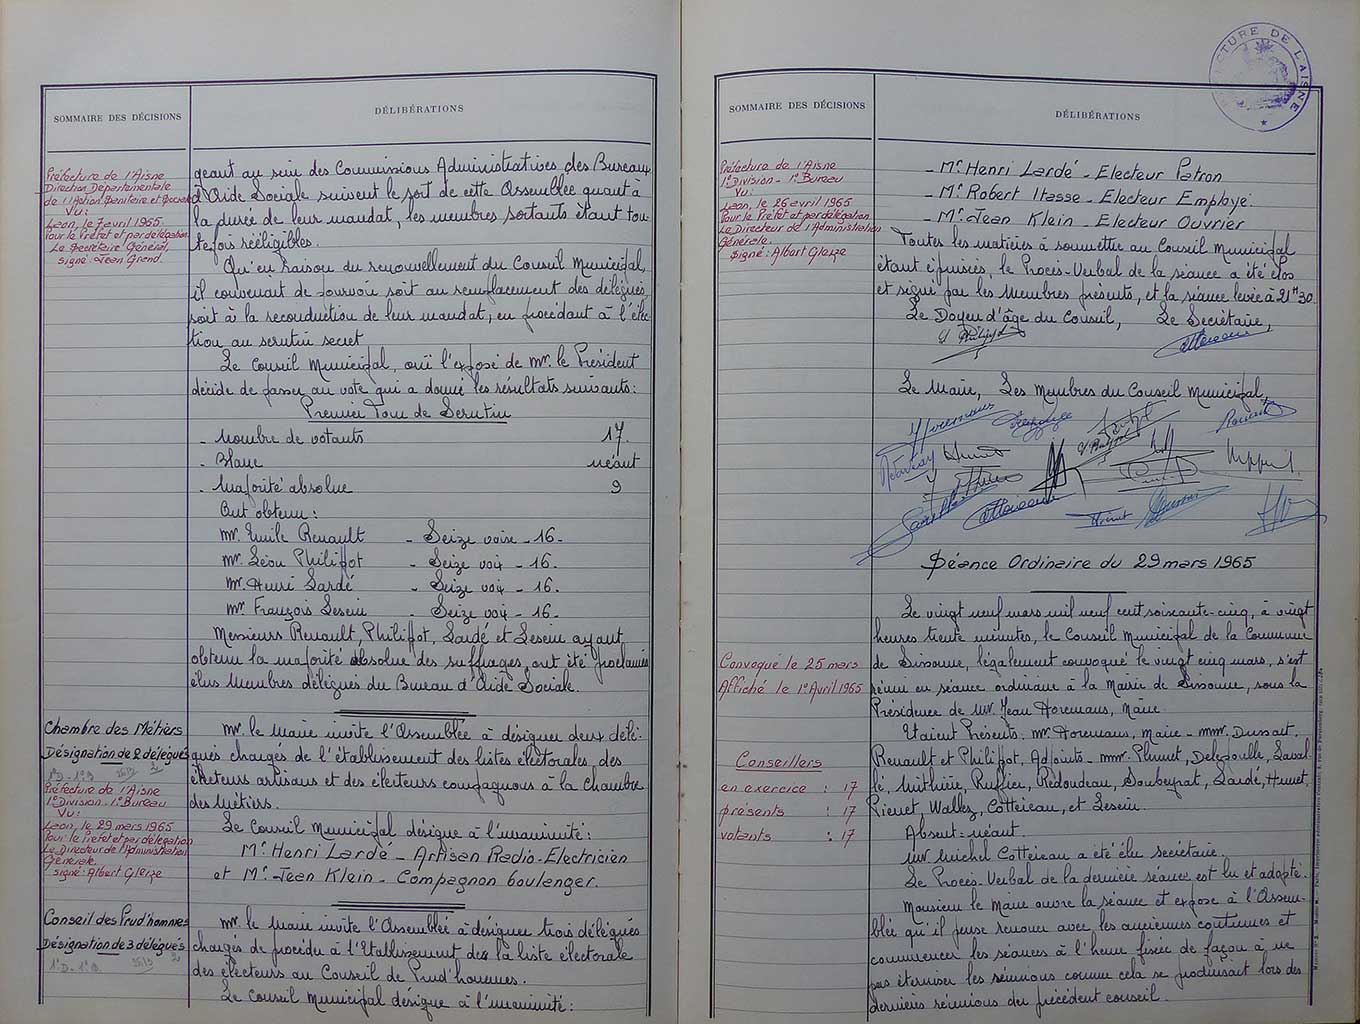 SOMMAIRE DES DÉCISIONS
DÉLIBÉRATIONS
Préfecture de l'Aisne
Direction Départementale
de l'Action Sanitaire et Sociale
Vu:
Laon, le 7 avril 1965
Pour le Préfet et par délégation
Le Secrétaire Général,
signé: Jean Grand.
geant au sein des Commissions Administratives des Bureaux
d'Aide Sociale suivent le sort de cette Assemblée quant à
la durée de leur mandat, les membres sortants étant tou-
tefois rééligibles.
Qu'en raison du renouvellement du Conseil Municipal,
il convenait de pourvoir soit au remplacement des délégués,
soit à la reconduction de leur mandat, en procédant à l'élec-
tion au scrutin secret
Le Conseil Municipal, ouï l'exposé de Mr. le Président
décide de passer au vote qui a donné les résultats suivants:
Premier Tour de Scrutin
- Nombre de votants 17.
- Blanc néant
- Majorité absolue 9
Ont obtenu:
Mr. Emile Renault - Seize voix - 16-
Mr. Léon Philippot - Seize voix - 16.
Mr. Henri Lardé - Seize voix - 16.
Mr. François Lesein - Seize voix - 16.
Messieurs Renault, Philippot, Lardé et Lesein ayant
obtenu la majorité absolue des suffrages, ont été proclamés
élus Membres délégués du Bureau d'Aide Sociale.
Chambre des Métiers
Désignation de 2 délégués
1°D - 1°B
Préfecture de l'Aisne
1°Division - 1°Bureau
Vu:
Laon, le 29 mars 1965
Pour le Préfet et par délégation
Le Directeur de l'Administration
Générale.
signé: Albert Gleize
Mr. le Maire invite l'Assemblée à désigner deux délé-
gués chargés de l'établissement des listes électorales, des
électeurs artisans et des électeurs compagnons à la Chambre
des Métiers.
Le Conseil Municipal désigne à l'unanimité:
Mr. Henri Lardé - Artisan Radio-Electricien
et Mr. Jean Klein - Compagnon boulanger.
Conseil des Prud'hommes
Désignation de 3 délégués
1°D - 1°B.
Mr. le Maire invite l'Assemblée à désigner trois délégués
chargés de procéder à l'Etablissement de la liste électorale
des électeurs au Conseil de Prud'hommes.
Le Conseil Municipal désigne à l'unanimité:
SOMMAIRE DES DÉCISIONS
DÉLIBÉRATIONS
PRÉFECTURE DE L'AISNE
Préfecture de l'Aisne
1°Division - 1°Bureau
Vu:
Laon, le 26 avril 1965
Pour le Préfet et par délégation
Le Directeur de l'Administration
Générale.
Signé: Albert Gleize
- Mr. Henri Lardé - Electeur Patron
- Mr. Robert Itasse - Electeur Employé.
- Mr. Jean Klein - Electeur Ouvrier
Toutes les matières à soumettre au Conseil Municipal
étant épuisées, le Procès-Verbal de la séance a été clos
et signé par les Membres présents, et la séance levée à 21H30.
Le Doyen d'âge du Conseil, Le Secrétaire,
Le Maire, Les Membres du Conseil Municipal,
Séance Ordinaire du 29 mars 1965
Le vingt neuf mars mil neuf cent soixante-cinq, à vingt
heures trente minutes, le Conseil Municipal de la Commune
de Sissonne, légalement convoqué le vingt cinq mars, s'est
réuni en séance ordinaire à la Mairie de Sissonne, sous la
Présidence de Mr. Jean Horemans, Maire
Convoqué le 25 mars
Affiché le 1° Avril 1965
Etaient Présents: Mr. Horemans, Maire - MMr. Dussart,
Renault et Philippot, Adjoints - MMr. Delépouille, Laval-
lé, Ruffier, Rédoudeau, Soubeyrat, Lardé, Hunet,
Pienet, Wallez, Cottereau, et Lesein.
Conseillers
en exercice : 17
présents : 17
votants : 17
Absent: néant.
Mr Michel Cottereau a été élu secrétaire.
Le Procès-Verbal de la dernière séance est lu et adopté.
Monsieur le Maire ouvre la séance et expose à l'Assem-
blée qu'il pense renouer avec les anciennes coutumes et
commencer les séances à l'heure fixée de façon à ne
pas éterniser les réunions comme cela se produisait lors des
dernières réunions du précédent conseil.